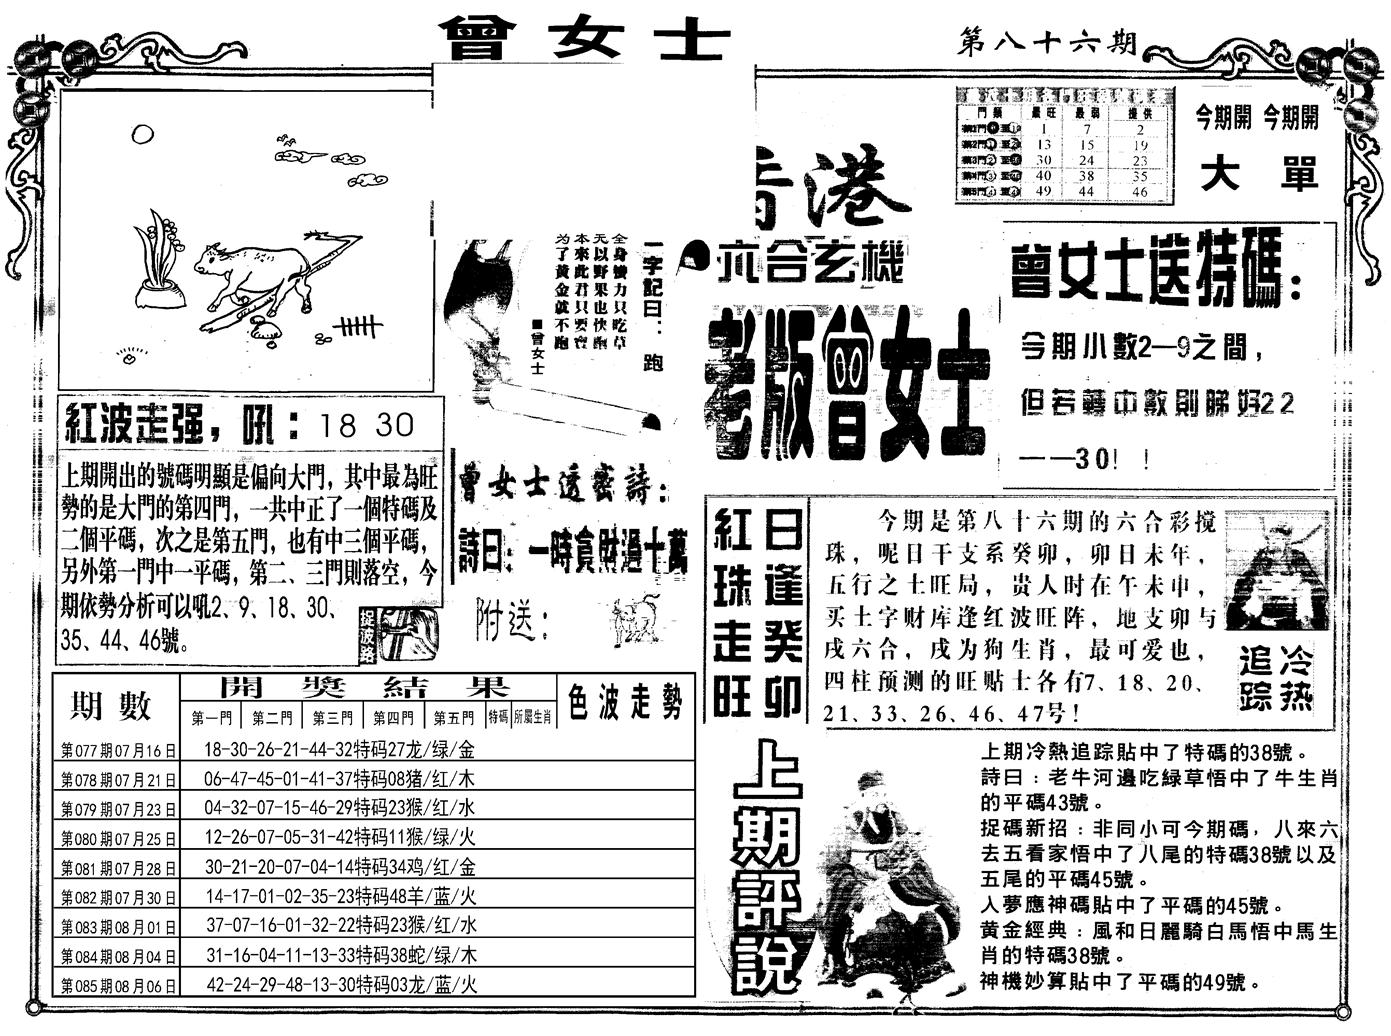 曾女士
第八十六期
門類 最旺 最弱 提供
1 7 2
13 15 19
30 24 23
40 38 35
49 44 46
今期開 今期開
大 單
香港
六合玄機
老版曾女士
一字記曰： 跑
全身蠻力只吃草
天以野果也快跑
本來此君只要官
为了黃金就不跑
■曾女士
曾女士送特碼：
今期小數2—9之間，
但若轉中數則睇好22
——30！！
紅波走强，吼：18 30
上期開出的號碼明顯是偏向大門，其中最為旺
勢的是大門的第四門，一共中正了一個特碼及
二個平碼，次之是第五門，也有中三個平碼，
另外第一門中一平碼，第二、三門則落空，今
期依勢分析可以吼2、9、18、30、
35、44、46號。
捉波路
曾女士透密詩：
詩曰：一時貪財過十萬
附送：
紅珠走旺
日逢癸卯
今期是第八十六期的六合彩搅
珠，呢日干支系癸卯，卯日未年，
五行之土旺局，贵人时在午未申，
买土字财库逢红波旺阵，地支卯与
戌六合，戌为狗生肖，最可爱也，
四柱预测的旺贴士各有7、18、20、
21、33、26、46、47号！
冷热
追踪
期數 開獎結果 色波走勢
第一門 第二門 第三門 第四門 第五門 特碼 所屬生肖
第077期07月16日 18-30-26-21-44-32特码27龙/绿/金
第078期07月21日 06-47-45-01-41-37特码08猪/红/木
第079期07月23日 04-32-07-15-46-29特码23猴/红/水
第080期07月25日 12-26-07-05-31-42特码11猴/绿/火
第081期07月28日 30-21-20-07-04-14特码34鸡/红/金
第082期07月30日 14-17-01-02-35-23特码48羊/蓝/火
第083期08月01日 37-07-16-01-32-22特码23猴/红/水
第084期08月04日 31-16-04-11-13-33特码38蛇/绿/木
第085期08月06日 42-24-29-48-13-30特码03龙/蓝/火
上期評說
上期冷熱追踪貼中了特碼的38號。
詩曰：老牛河邊吃緑草悟中了牛生肖
的平碼43號。
捉碼新招：非同小可今期碼，八來六
去五看家悟中了八尾的特碼38號以及
五尾的平碼45號。
人夢應神碼貼中了平碼的45號。
黃金經典：風和日麗騎白馬悟中馬生
肖的特碼38號。
神機妙算貼中了平碼的49號。